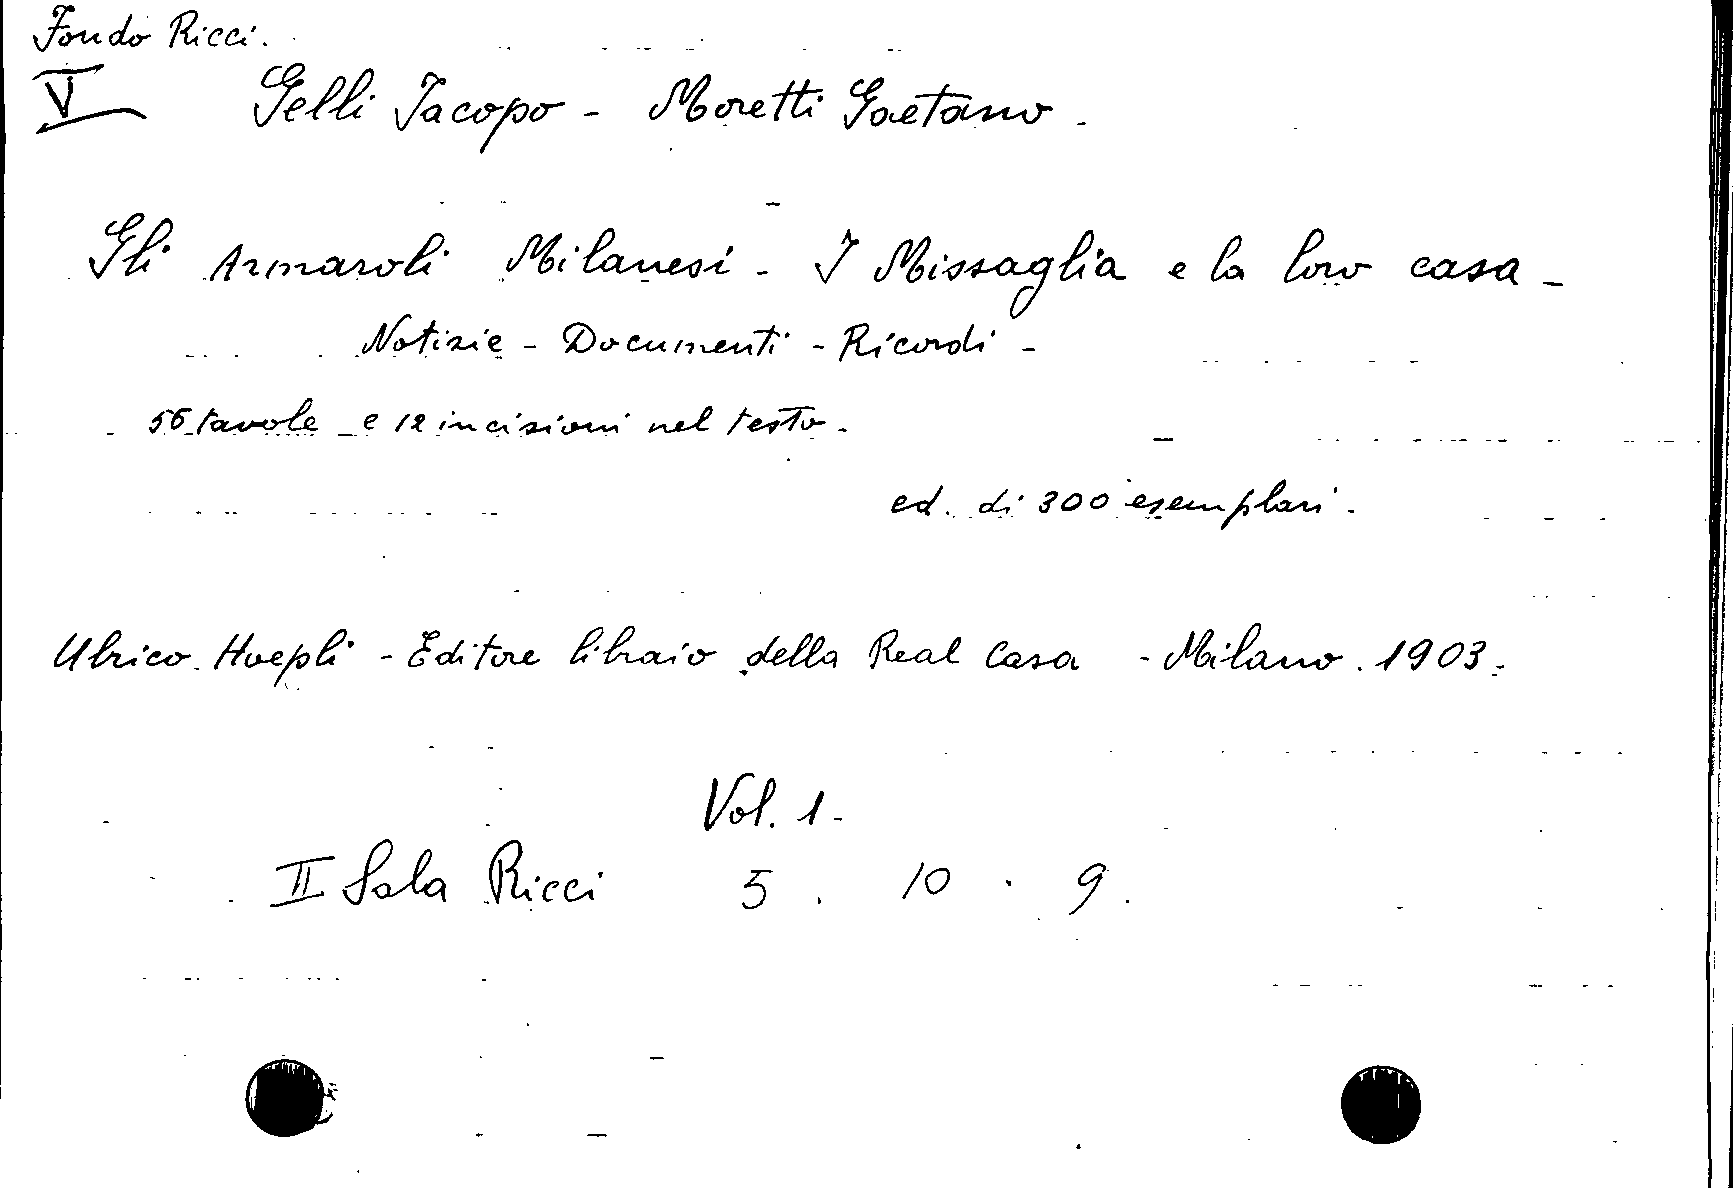 Fondo Ricci.
V Gelli Jacopo - Moretti Gaetano -
Gli Armaroli Milanesi - I Missaglia e la loro casa -
Notizie - Documenti - Ricordi -
56 tavole e 12 incisioni nel testo -
ed. di 300 esemplari.
Ulrico Hoepli - Editore libraio della Real Casa - Milano . 1903 -
Vol. 1 -
II Sala Ricci 5 . 10 . 9 .